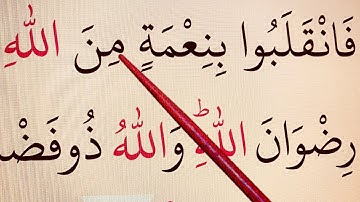 فَانْقَلَبُوا بِنِعْمَةٍ مِنَ اللّٰهِ
رِضْوَانَ اللّٰهِؕ وَاللّٰهُ ذُوفَضْ